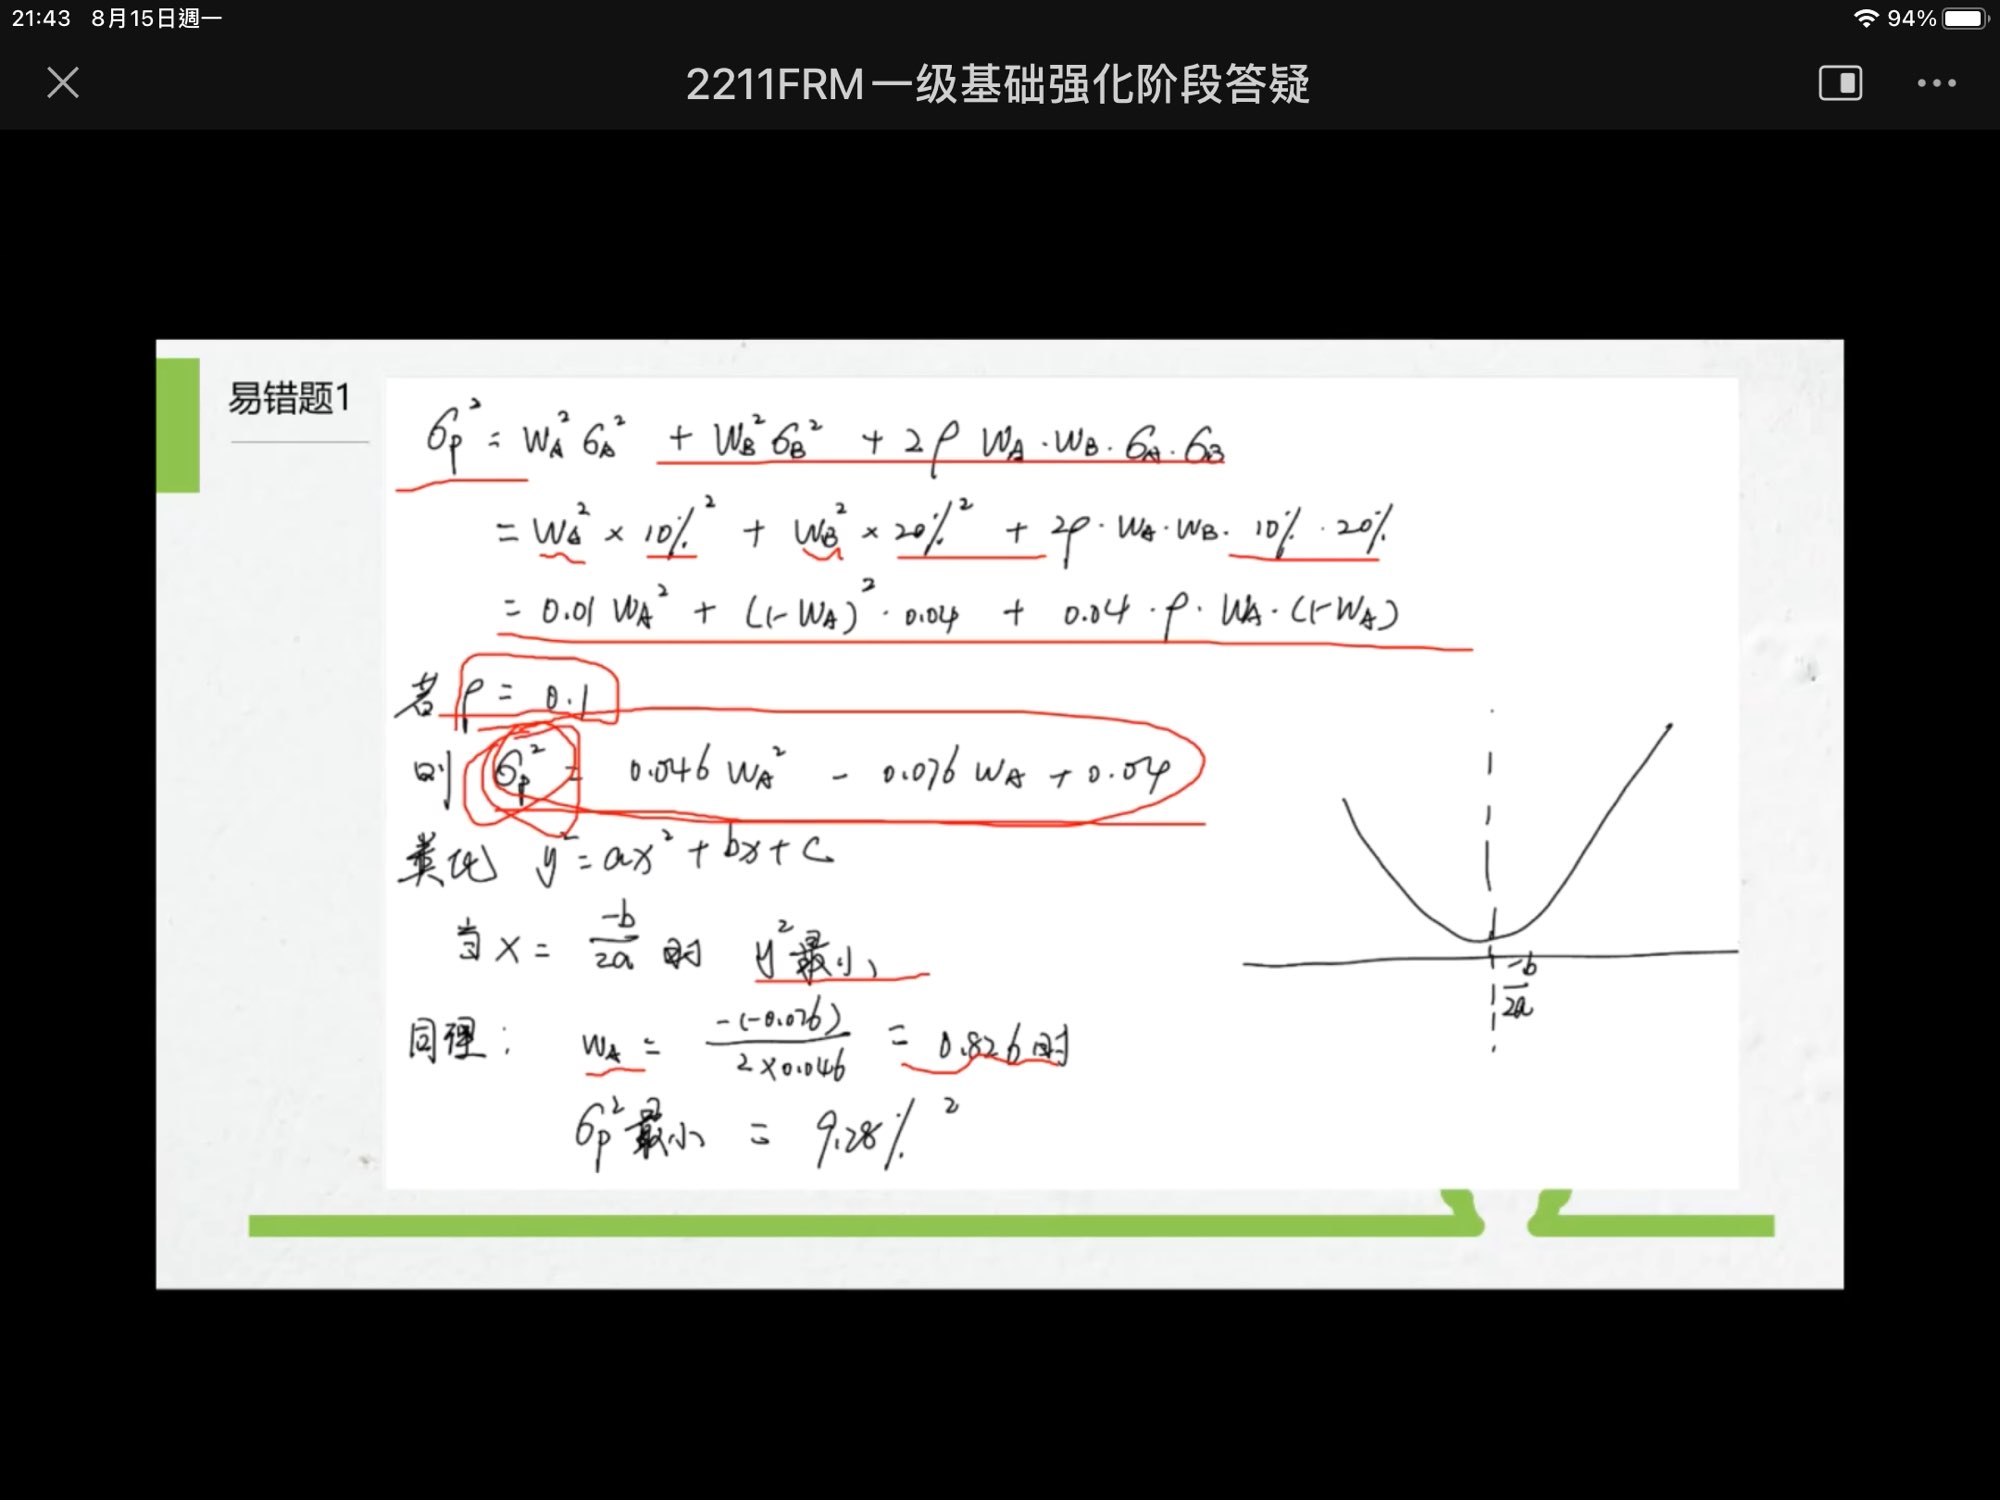 21:43 8月15日週一
94%
2211FRM一级基础强化阶段答疑
易错题1
σp² = WA²σA² + WB²σB² + 2ρ WA·WB·σA·σB
= WA² × 10%² + WB² × 20%² + 2ρ·WA·WB·10%·20%
= 0.01 WA² + (1-WA)²·0.04 + 0.04·ρ·WA·(1-WA)
若 ρ = 0.1
则 σp² = 0.046 WA² - 0.076 WA + 0.04
类比 y² = ax² + bx + c
当 x = -b/2a 时 y²最小、
-b/2a
同理: WA = -(-0.076)/2×0.046 = 0.826时
σp²最小 = 9.28%²